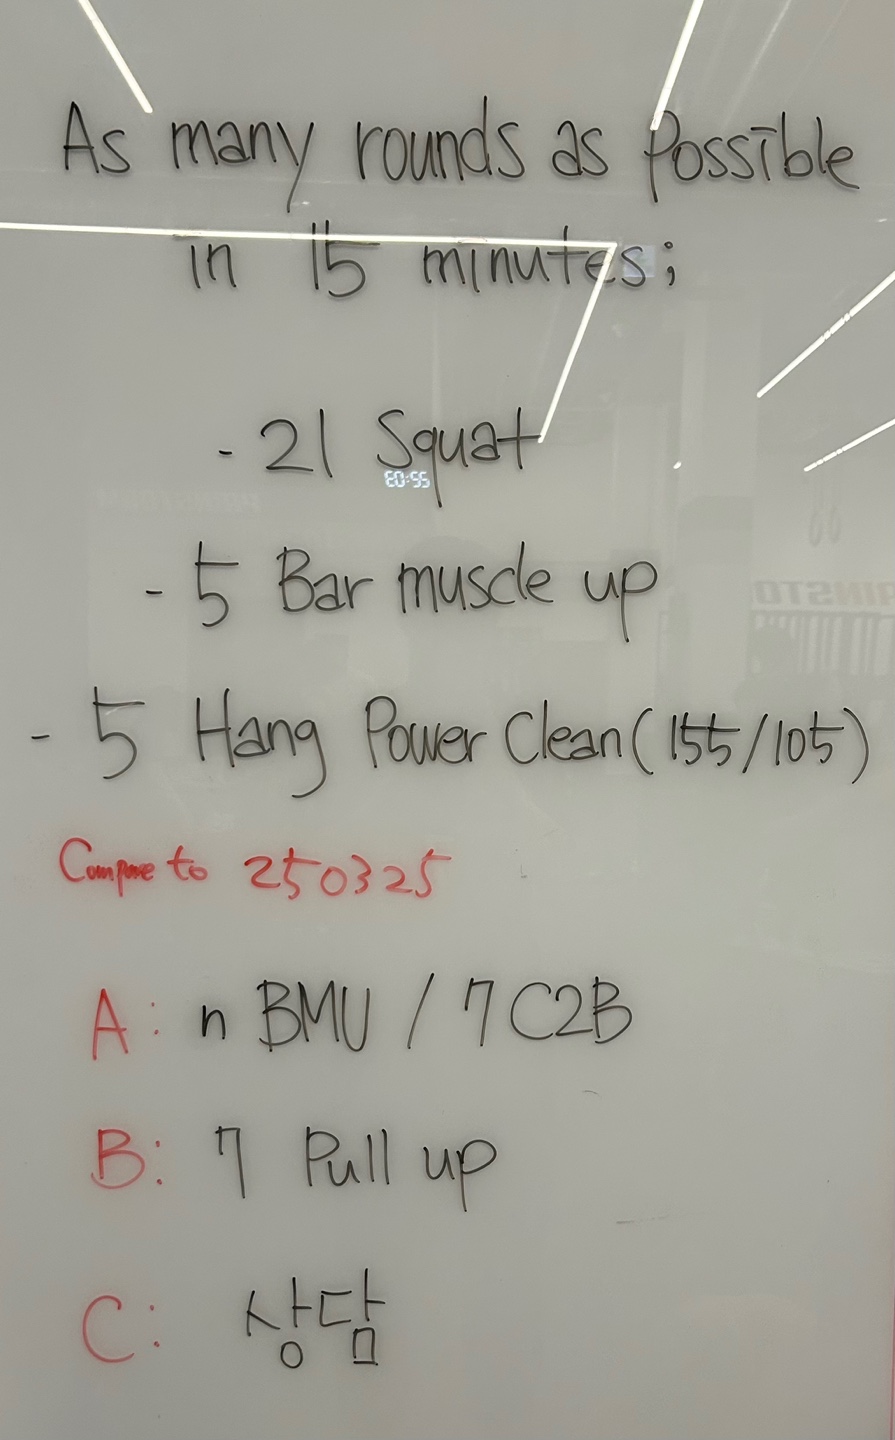 As many rounds as Possible
in 15 minutes;
- 21 Squat
- 5 Bar muscle up
- 5 Hang Power Clean (155/105)
Compare to 250325
A: n BMU / 7 C2B
B: 7 Pull up
C: 상담